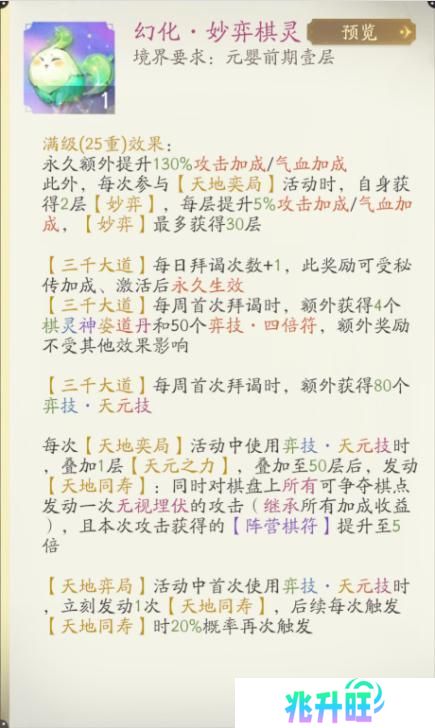 幻化·妙弈棋灵
预览
境界要求：元婴前期壹层
1
满级(25重)效果：
永久额外提升130%攻击加成/气血加成
此外，每次参与【天地奕局】活动时，自身获
得2层【妙弈】，每层提升5%攻击加成/气血加
成，【妙弈】最多获得30层
【三千大道】每日拜谒次数+1，此奖励可受秘
传加成、激活后永久生效
【三千大道】每周首次拜谒时，额外获得4个
棋灵神姿道丹和50个弈技·四倍符，额外奖励
不受其他效果影响
【三千大道】每周首次拜谒时，额外获得80个
弈技·天元技
每次【天地奕局】活动中使用弈技·天元技时
，叠加1层【天元之力】，叠加至50层后，发动
【天地同寿】：同时对棋盘上所有可争夺棋点
发动一次无视埋伏的攻击（继承所有加成收益
），且本次攻击获得的【阵营棋符】提升至5
倍
【天地弈局】活动中首次使用弈技·天元技时
，立刻发动1次【天地同寿】，后续每次触发
【天地同寿】时20%概率再次触发
兆升旺